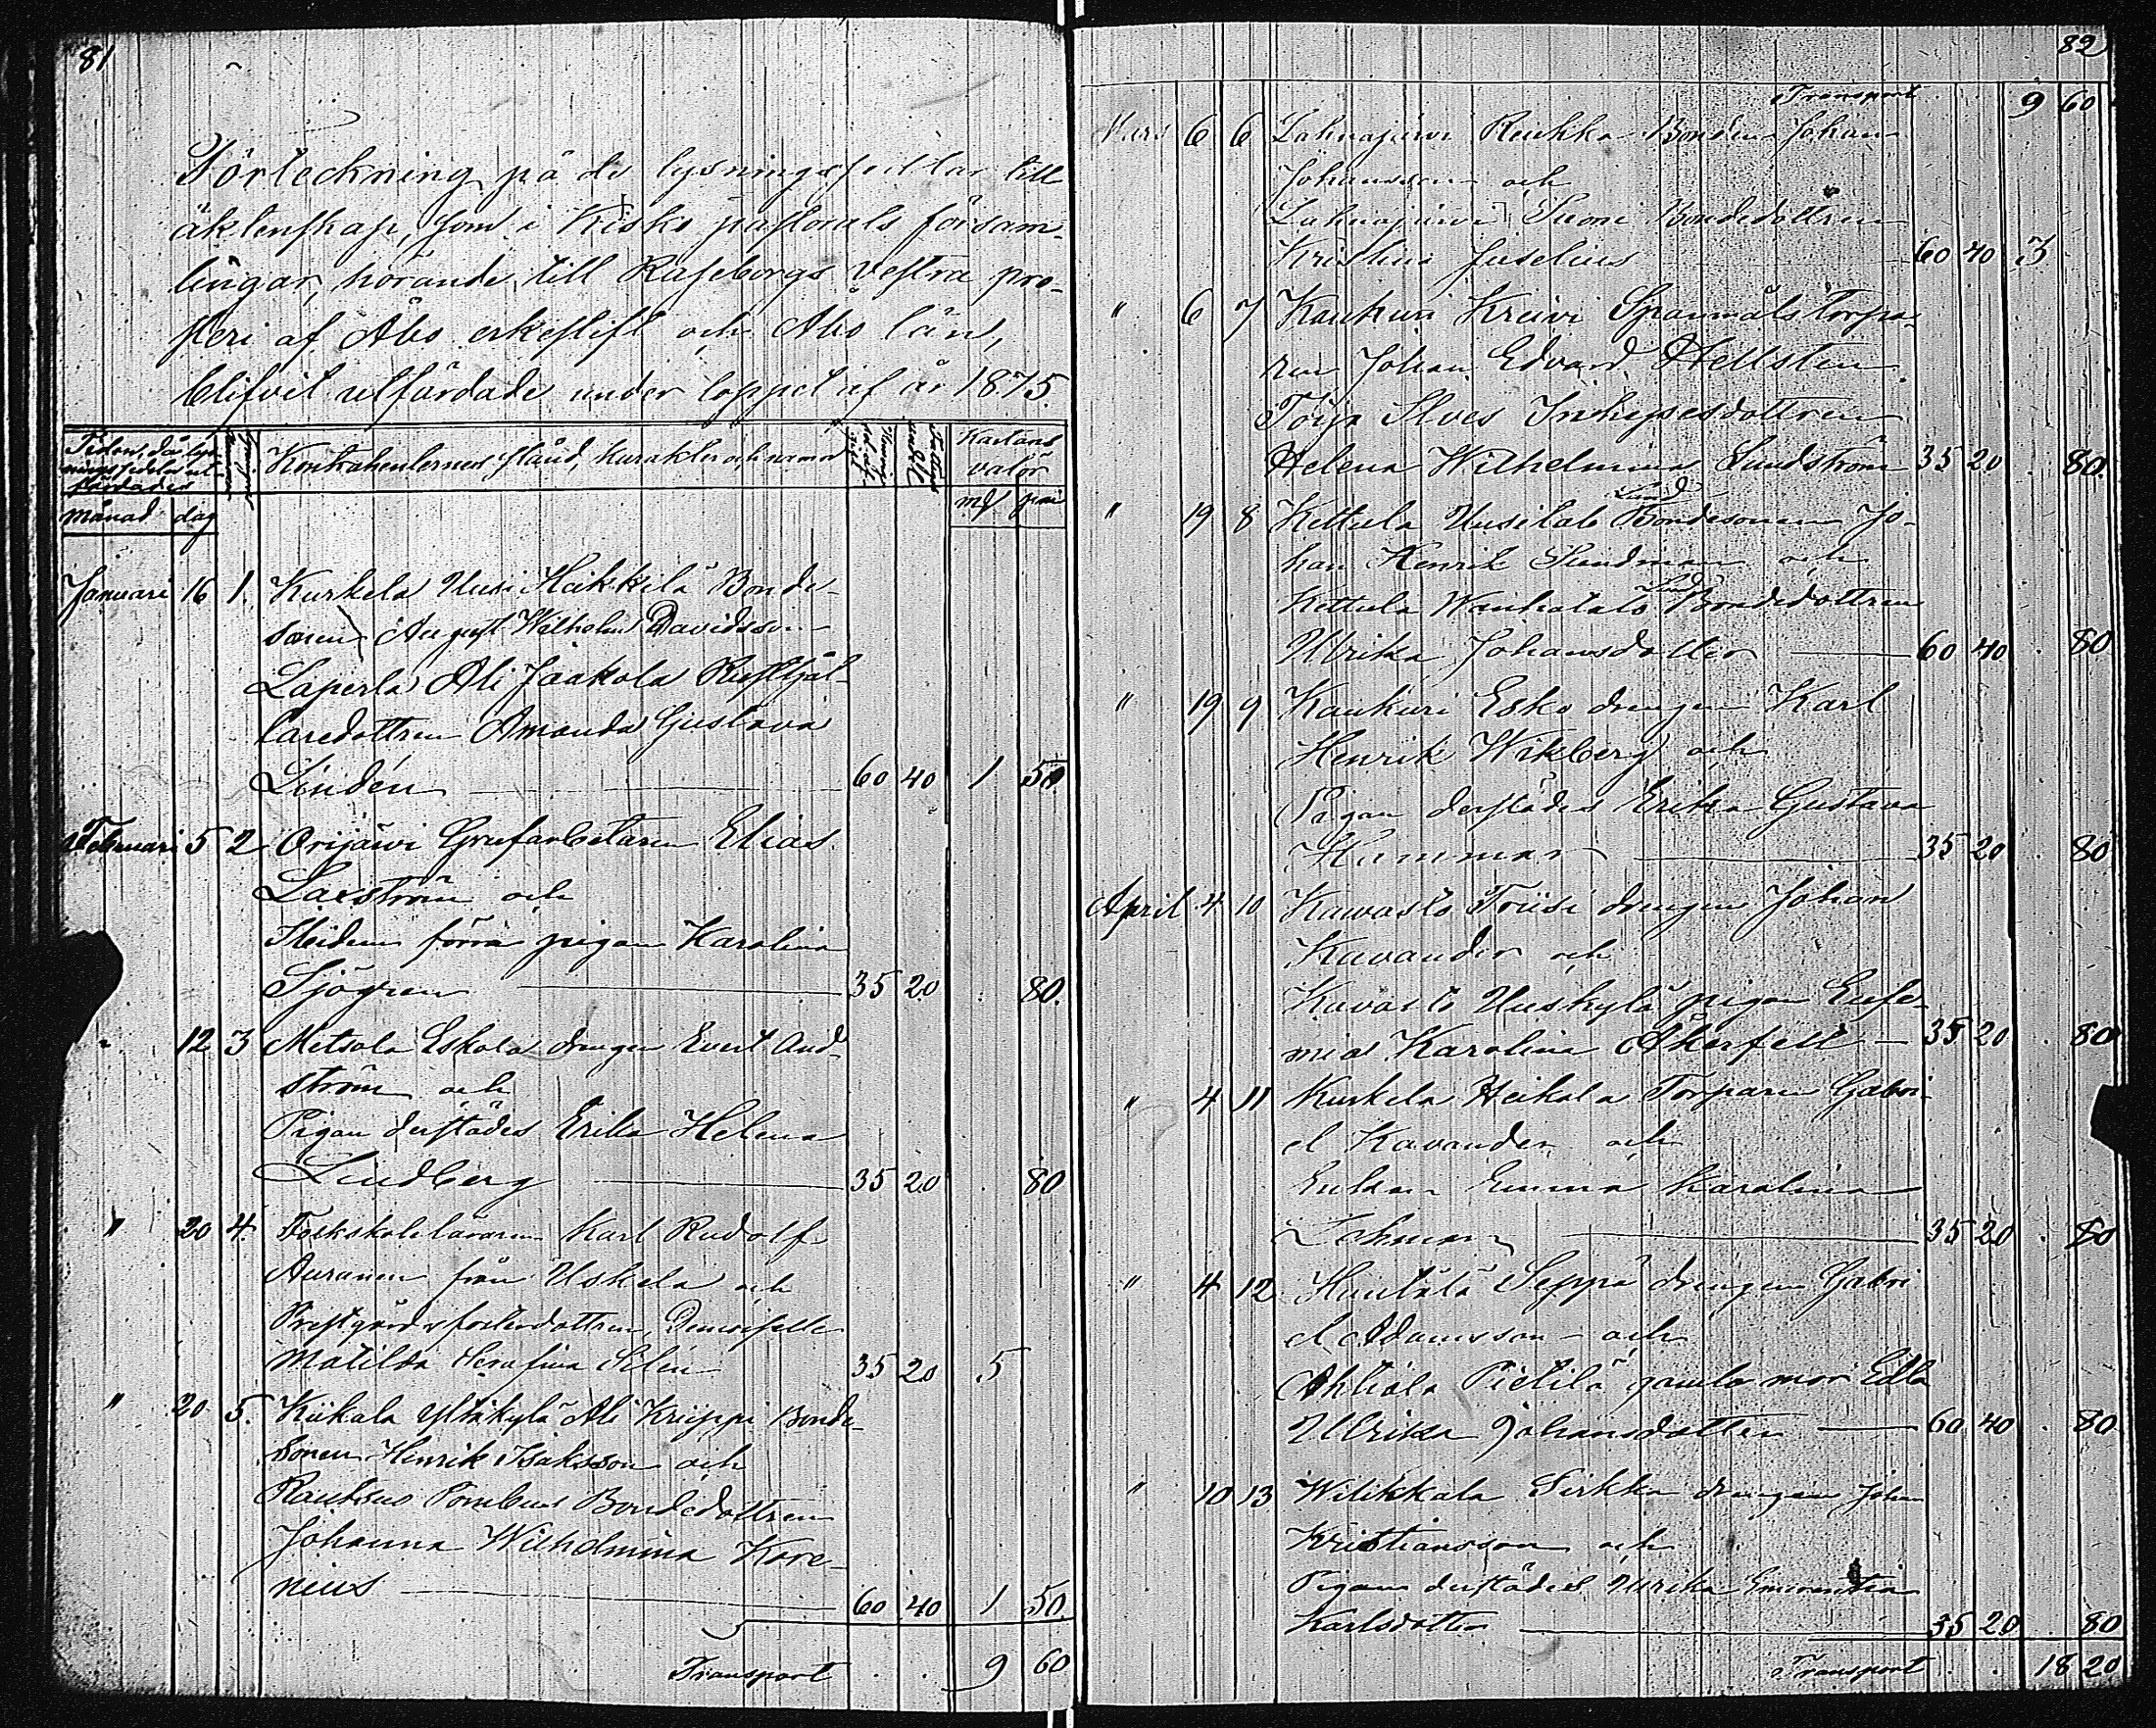 81
Förteckning på de lysningssedlar till
äktenskap, som i Kisko pastorats försam-
lingar, hörande till Raseborgs vestra pro-
steri af Åbo erkestift och Åbo län,
blifvit utfärdade under loppet af år 1875.
Tiden, då lys-
ningssedeln ut-
färdades
månad dag
Kontrahenternes stånd, karakter och namn
Kartans
valör
mk pni
Januari 16 1. Kurkela Uusi Heikkilä Bonde-
sonen August Wilhelm Davidsson
Laperla Ali Jaakola Rusthål-
laredottren Amanda Gustava
Lindén 60 40 1 50
Februari 5 2 Orijärvi Grufarbetaren Elias
Laxström och
förra pigan Karolina
Sjögren 35 20 . 80.
" 12 3 Metsola Eskola drengen Evert And-
ström och
Pigan derstädes Erika Helena
Lindberg 35 20 80
" 20 4. Folkskoleläraren Karl Rudolf
Auranen från Uskela och
Prestgårds fosterdottren, Demoiselle
Matilda Serafina Selin 35 20 5
" 20 5. Kiikala Yltäkylä Ali Kriippi Bonde-
sonen Henrik Isaksson och
Rauksuo Bondedottren
Johanna Wilhelmina Kore-
nius 60 40 1 50
Transport . . 9 60
82
Transport 9 60
Mars 6 6 Lahnajärvi Reukka Bonden Johan
Johansson och
Lahnajärvi Suoni Bondedottren
Kristina Juselius 60 40 3
" 6 7 Kaukuri Kreivi Spanmåls torpa-
ren Johan Edvard Hellsten.
Toija Inhysesdottren
Helena Wilhelmina Sundström 35 20 . 80.
" 19 8 Kettula Uusitalo Land Bondesonen Jo-
han Henrik Sundman och
Kettula Wanhatalo Land Bondedottren
Ulrika Johansdotter 60 40 . 80
" 19 9 Kaukuri Esko drengen Karl
Henrik Wikberg och
Pigan derstädes Erika Gustava
Hammar 35 20 . 80
April 4 10 Kavasto drengen Johan
Kavander och
Kavasto Uuskylä pigan Eufe-
mia Karolina Åkerfelt 35 20 . 80
" 4 11 Kurkela Heikola Torparen Gabri-
el Kavander och
Enkan Emma Karolina
Lehman 35 20 . 80
" 4 12 Seppä drengen Gabri-
el Adamsson och
Ahtiala Pietilä gamla mor Edla
Ulrika Johansdotter 60 40 . 80.
" 10 13 Wilikkala Sirkka drengen Johan
Kristiansson och
Pigan derstädes Ulrika Emerentia
Karlsdotter 35 20 80
Transport . . 18 20